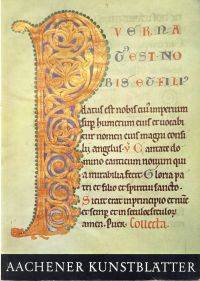 P VERNA
TVS EST NO
BIS ET FILI
datus est nobis cui' imperium
sup humerum eius et vocabi
tur nomen eius magni consi
lii angelus. V Cantate do
mino canticum novum qui
a mirabilia fecit Gloria pa
tri et filio et spiritui sancto.
Sicut erat in principio et nunc
et semp et in secula seculorum
amen. Puer. Collecta.
AACHENER KUNSTBLÄTTER